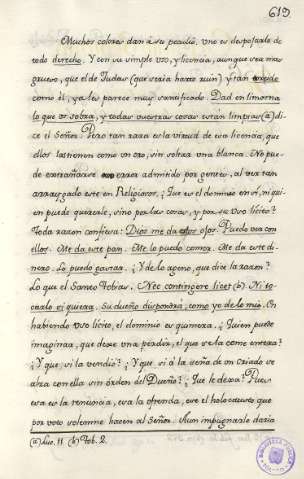 619.
Muchos colores dan à su peculio. Uno es despojarle de
todo derecho. Y con su simple uso, y licencia, aunque sea mas
grueso, que el de Judas (que seria harto ruin) y tan
como él, ya les parece muy santificado. Dad en limosna
lo que os sobra, y todas vuestras cosas están limpias (a) di-
ce el Señor. Pero tan rara es la virtud de esa licencia, que
ellos lo tienen como un oro, sin soltar una blanca. No pue-
de extrañarse admitido por genero, al ver tan
arraygado este en Religiosos. ¿Que es el dominio en sí, ni qui-
en puede quererle, sino por las cosas, y por su uso lícito?
Toda razon confiesa: Dios me da estos ojos. Puedo ver con
ellos. Me da este pan. Me lo puedo comer. Me da este di-
nero. Lo puedo gastar. ¿Y de lo ageno, que dice la razon?
Lo que el Santo Tobias. Nec contingere licet (b). Ni to-
carlo ni quiera. Su dueño dispondrá, como yo de lo mio. En
habiendo uso lícito, el dominio es quimera. ¿Quien puede
imaginar, que dexe una perdiz, el que se la come entera?
¿Y que, si la vendió? ¿Y que, si à la seña de un criado se
alza con ella sin órden del Dueño? ¿Que le dexa? Pues
esa es la renuncia, esa la ofrenda, ese el holocausto que
por voto solemne hacen al Señor. Aun impugnarle daria
(a) Luc. 11. (b) Tob. 2.